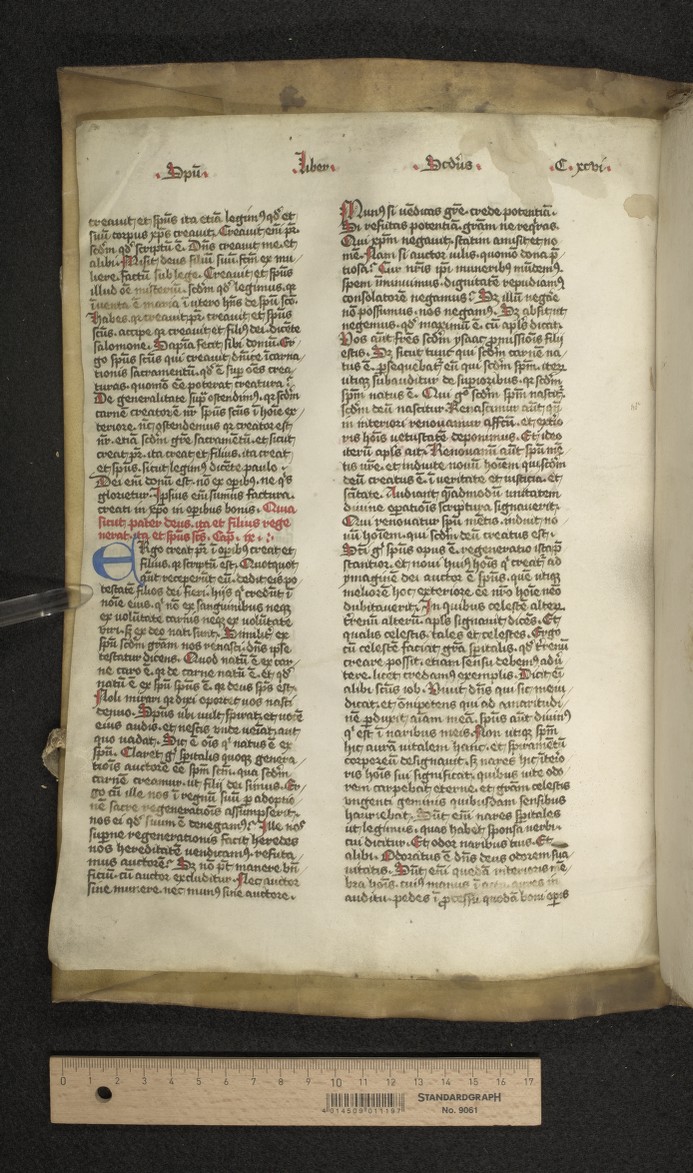 .Spū. .Liber. .Scdūs. .C. xcvi.
creauit, et spūs ita etiā legim9 qd' et
suū corpus xp̄s creauit. Creauit em̄ pr̄
scd̄m qd' scriptū ē. Dn̄s creauit me. et
alibi. Misit deus filiū suū fc̄m ex mu/
liere. factū sub lege. Creauit et spūs
illud ōe misteriū. scd̄m qd' legimus. qr
īuenta ē maria ī utero hn̄s de spū sc̄o.
Habes qr creauit pr̄. creauit et spūs
sc̄us. accipe qr creauit et fili9 dei. dicēte
salomone. Sapīa fecit sibi domū. Er
go spūs sc̄us qui creauit dn̄ice īcarna
tionis sacramentū. qd' ē sup̄ ōes crea
turas. quomō ēē poterat creatura.
De generalitate sup̄ ostendim9. qr scd̄m
carnē creatorē nr̄ spūs sc̄us ī hoīe ex/
teriore. nc̄ ostendemus qr creator est
nr̄. etiā scd̄m grē sacramētū. et sicut
creat pr̄. ita creat et filius. ita creat
et spūs. sicut legim9 dicēte paulo.
Dei em̄ donū est. nō ex opib9. ne q's
glorietur. Ipsius em̄ sumus factura.
creati in xp̄o in opibus bonis. Quia
sicut pater deus. ita et filius rege
nerat. ita et spūs sc̄s. Cap. ix.
Ergo creat pr̄ ī opib9 creat et
filius. qr scriptū est. Quotquot
aūt receperūt eū. dedit eis po
testatē filios dei fieri. hijs q' credūt ī
noīe eius. q' nō ex sanguinibus neqz
ex volūtate carnis neqz ex volūtate
viri. sz ex deo nati sunt. Similit' ex
spū scd̄m grām nos renasci. dn̄s ip̄se
testatur dicens. Quod natū ē ex car/
ne caro ē. qr de carne natū ē. et qd'
natū ē ex spū spūs ē. qr deus spūs est.
Noli mirari qr dixi oportet vos nasci
denuo. Spūs ubi uult spirat. et vocē
eius audis. et nescis unde veīat. aut
quo uadat. Sic ē ōis q' natus ē ex
spū. Claret g° spītalis quoqz genera/
tiōis auctorē ēē spm̄ sc̄m. qua scd̄m
carnē creamur. ut filii dei simus. Er/
go cū ille nos ī regnū suū p adoptio/
nē sacre regenerationis assumpserit.
nos ei qd' suum ē denegam9? Ille nos
sup̄ne regenerationis facit heredes
nos hereditatē vendicam9. refuta/
mus auctorē? Sz nō pt̄ manere bn̄
ficiū. cū auctor excluditur. Nec auctor
sine munere. nec mun9 sine auctore.
Mun9 si uēdicas grē. crede potentiā.
Si refutas potentiā. grām ne reqras.
Qui xp̄m negauit. statim amisit et no
mē. Nam si auctor uilis. quomō dona p̄
tiosa. Cur nr̄is ip̄i munerib9 inuīdem9.
spem imminuimus. dignitatē repudiam9
consolatorē negamus? Sz illū negāe
nō possumus. nos negam9. Sz absit ut
negemus. qd' maximū ē. cū apl̄s dicat.
Vos aūt fr̄es scd̄m ysaac p̄missionis filii
estis. Sz sicut tunc qui scd̄m carnē na/
tus ē. p̄sequebat' eū qui scd̄m spm̄. iterz
utiqz subauditur de supioribus. qr scd̄m
spm̄ natus ē. Qui g° scd̄m spm̄ nascit'.
scd̄m deū nascitur. Renascimur aūt qn̄
in interiori renouamur affc̄tu. et exterio
ris hoīs uetustatē deponimus. Et ideo
iterū apl̄s ait. Renouam̄ aūt spū mē
tis vr̄e. et induite nouū hoīem qui scd̄m
deū creatus ē. ī veritate et iusticia. et
sc̄itate. Audiant q'admodū unitatem
diuine opationis scriptura signauerit.
Qui renouatur spū mētis. induit no
uū hoīem. qui scd̄m deū creatus est.
cū celestē faciat gr̄a spītalis. qd' t'renū
creare possit. etiam sensu debem9 aduer
tere. licet credam9 exemplis. Dicit em̄
alibi sc̄tūs iob. Viuit dn̄s qui sic me iu
dicat. et om̄ipotens qui ad amaritudi
nē p̄duxit aīam meā. spūs aūt diuin9
q' est ī naribus meis. Non utiqz spm̄
hic aurā vitalem hanc. et spiramētū
corporeū designauit. sz nares hic īterio
ris hoīs sui significat. quibus uite odo
rem carpebat eterne. et grām celestis
ungenti geminis quibusdam sensibus
hauriebat. Sūt em̄ nares spītales
ut legimus. quas habet sponsa uerbi.
cui dicitur. Et odor naribus tuis. Et
alibi. Odoratus ē dn̄s deus odorem sua
uitatis. Sūt em̄ quedā interioris mē
bra hoīs. cui9 manus ī actu. aures in
auditu. pedes ī processu quodā boni opis
0 1 2 3 4 5 6 7 8 9 10 11 12 13 14 15 16 17
4 014509 011197
STANDARDGRAPH
No. 9061